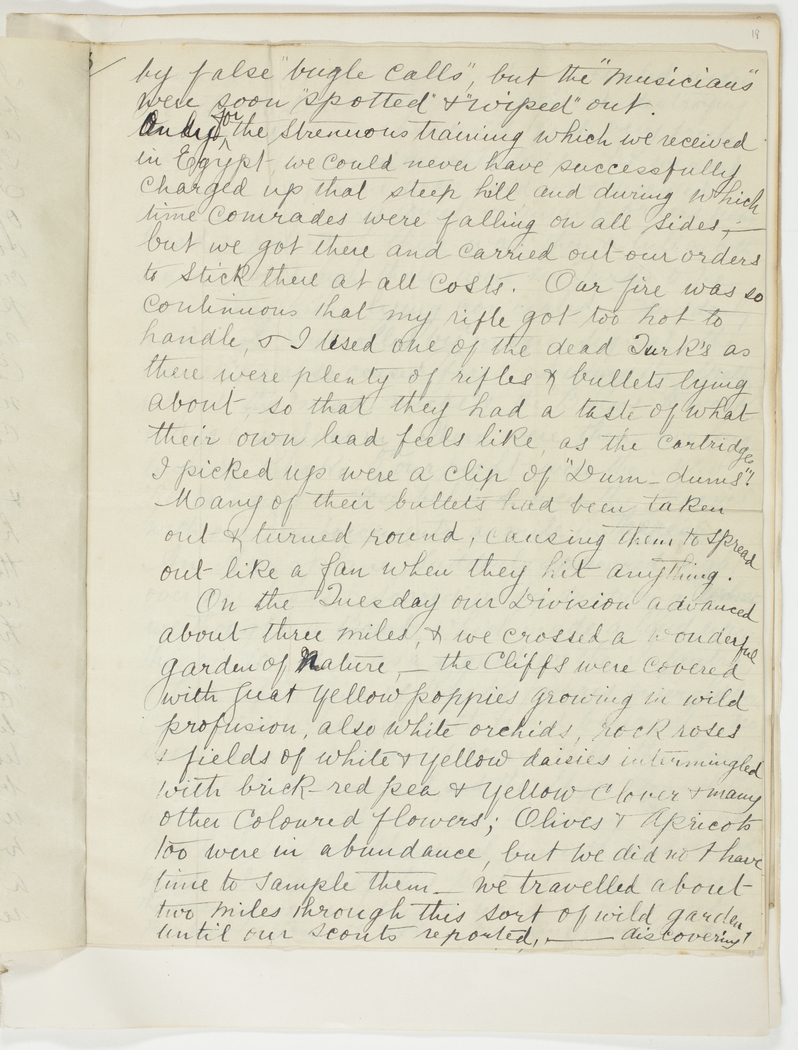 19
by false "bugle calls", but the "musicians"
were soon "spotted" & "wiped" out.
Only for the strenuous training which we received
in Egypt, we could never have successfully
charged up that steep hill, and during which
time comrades were falling on all sides, —
but we got there and carried out our orders
to stick there at all costs. Our fire was so
continuous that my rifle got too hot to
handle, & I used one of the dead Turk's as
there were plenty of rifles & bullets lying
about, so that they had a taste of what
their own lead feels like, as the cartridges
I picked up were a clip of "Dum-dums"!
Many of their bullets had been taken
out & turned round, causing them to spread
out like a fan when they hit anything.
On the Tuesday our Division advanced
about three miles, & we crossed a wonderful
garden of Nature, — the Cliffs were covered
with great yellow poppies growing in wild
profusion, also white orchids, rock roses
& fields of white & yellow daisies intermingled
with brick-red pea & yellow clover & many
other coloured flowers; Olives & Apricots
too were in abundance, but we did not have
time to sample them — we travelled about
two miles through this sort of wild garden
until our scouts reported, — discovering